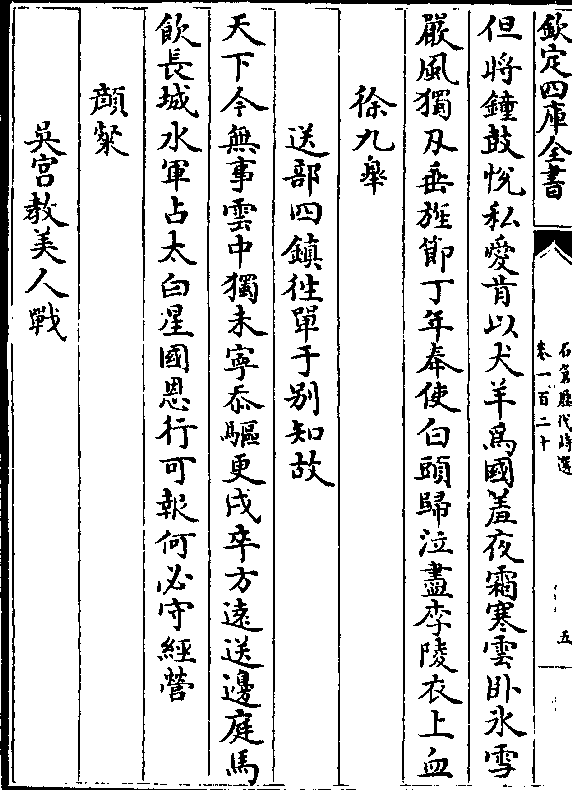 欽定四庫全書
石倉歷代詩選
卷一百二十
五
但将鍾鼓悅私愛肯以犬羊為國羞夜霜寒雲卧氷雪
嚴風獨刄垂旌節丁年奉使白頭歸泣盡李陵衣上血
徐九臯
送部四鎮往單于别知故
天下今無事雲中獨未寧忝驅更戍卒方遠送邊庭馬
飲長城水軍占太白星國恩行可報何必守經營
顔粲
吳宫教美人戰